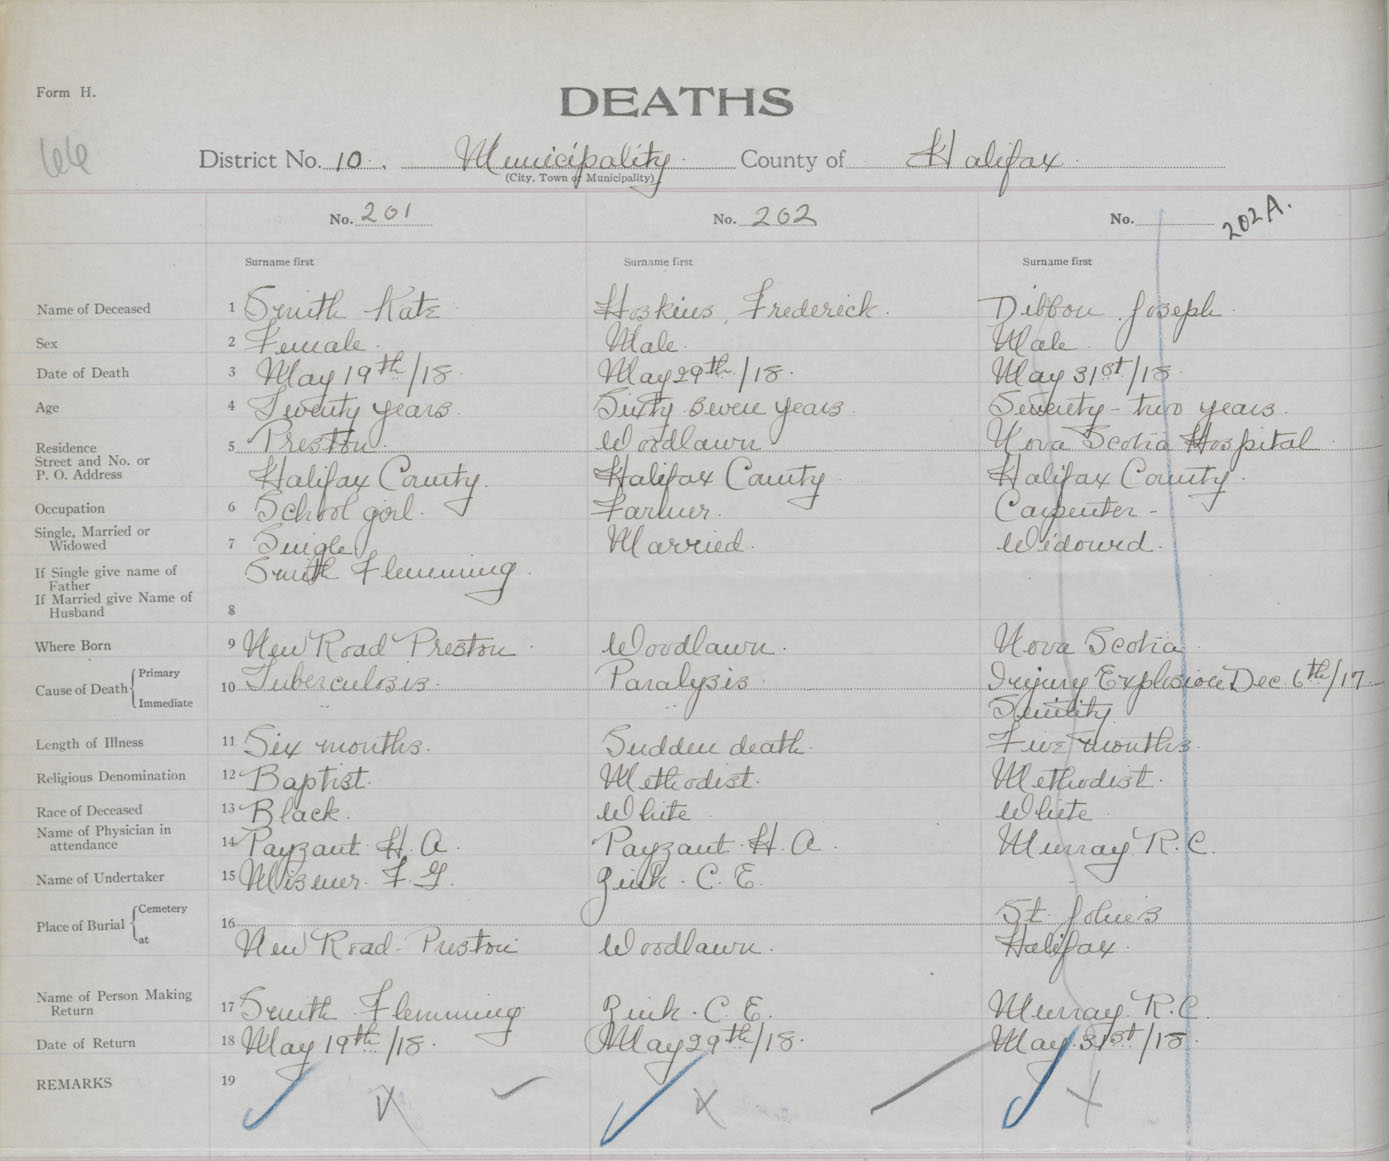 Form H.
DEATHS
66
District No. 10. Municipality County of Halifax
(City, Town or Municipality)
No. 201 No. 202 No. 202A.
Surname first Surname first Surname first
Name of Deceased 1 Smith Kate Hoskins, Frederick. Dibbon Joseph.
Sex 2 Female. Male. Male
Date of Death 3 May 19th/18. May 29th/18. May 31st/18
Age 4 Twenty years. Sixty seven years. Seventy-two years.
Residence 5 Preston Woodlawn Nova Scotia Hospital
Street and No. or
P. O. Address Halifax County. Halifax County Halifax County.
Occupation 6 School girl. Farmer. Carpenter -
Single, Married or
Widowed 7 Single Married. Widowed.
If Single give name of
Father Smith Flemming.
If Married give Name of
Husband 8
Where Born 9 New Road Preston Woodlawn. Nova Scotia
Cause of Death { Primary 10 Tuberculosis. Paralysis Injury Explosion Dec. 6th/17
Immediate Senility
Length of Illness 11 Six months. Sudden death. Five months.
Religious Denomination 12 Baptist. Methodist. Methodist.
Race of Deceased 13 Black. White White
Name of Physician in
attendance 14 Payzant H. A. Payzant H. A. Murray R. C.
Name of Undertaker 15 Misener. F. G. Zink. C. E.
Place of Burial { Cemetery 16 St. John's
at New Road Preston Woodlawn. Halifax.
Name of Person Making
Return 17 Smith Flemming Zink. C. E. Murray R. C.
Date of Return 18 May 19th/18. May 29th/18. May 31st/18.
REMARKS 19